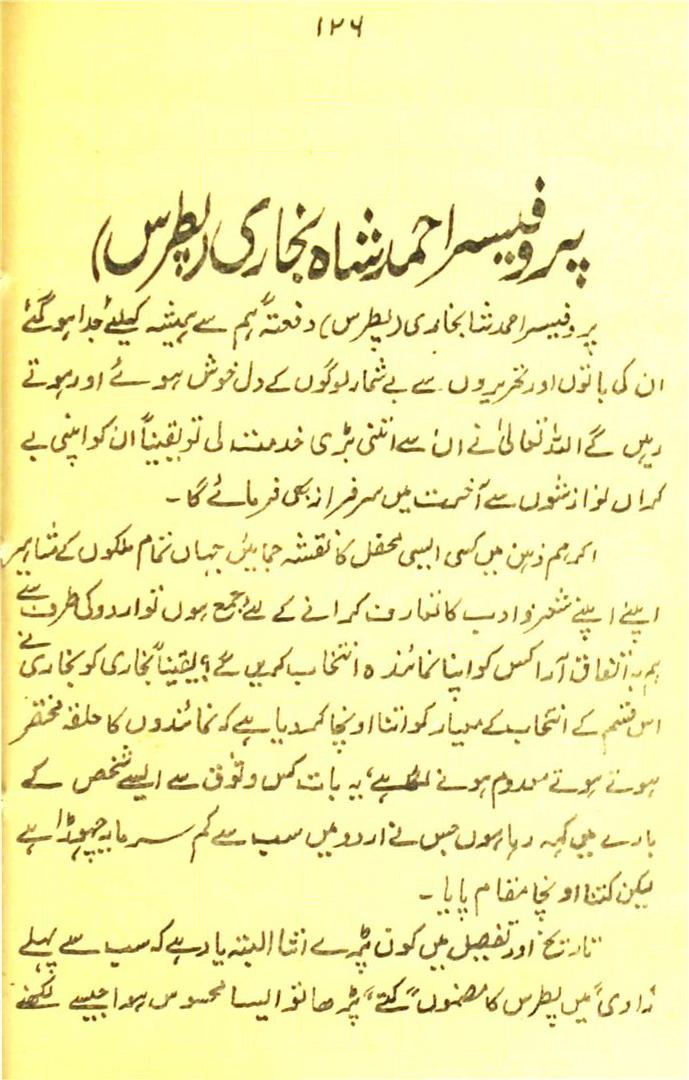 ۱۲۶
پروفیسر احمد شاہ بخاری (پطرس)
پروفیسر احمد شاہ بخاری (پطرس) دفعتہً ہم سے ہمیشہ کیلئے جدا ہو گئے
ان کی باتوں اور تحریروں سے بے شمار لوگوں کے دل خوش ہوئے اور ہوتے
رہیں گے اللہ تعالیٰ نے ان سے اتنی بڑی خدمت لی تو یقیناً ان کو اپنی بے
کراں نوازشوں سے آخرت میں سرفراز بھی فرمائے گا۔
اگر ہم ذہن میں کسی ایسی محفل کا نقشہ جمائیں جہاں تمام ملکوں کے مشاہیر
اپنے اپنے شعر و ادب کا تعارف کرانے کے لئے جمع ہوں تو اردو کی طرف سے
ہم بہ اتفاق آرا کس کو اپنا نمائندہ انتخاب کریں گے؟ یقیناً بخاری کو بخاری نے
اس قسم کے انتخاب کے معیار کو اتنا اونچا کر دیا ہے کہ نمائندوں کا حلقہ مختصر
ہوتے ہوتے معدوم ہونے لگا ہے، یہ بات کس وثوق سے ایسے شخص کے
بارے میں کہہ رہا ہوں جس نے اردو میں سب سے کم سرمایہ چھوڑا ہے
لیکن کتنا اونچا مقام پایا۔
تاریخ اور تفصیل میں کون پڑے اتنا البتہ یاد ہے کہ سب سے پہلے
"راوی" میں پطرس کا مضمون "کتے" پڑھا تو ایسا محسوس ہوا جیسے لکھنے